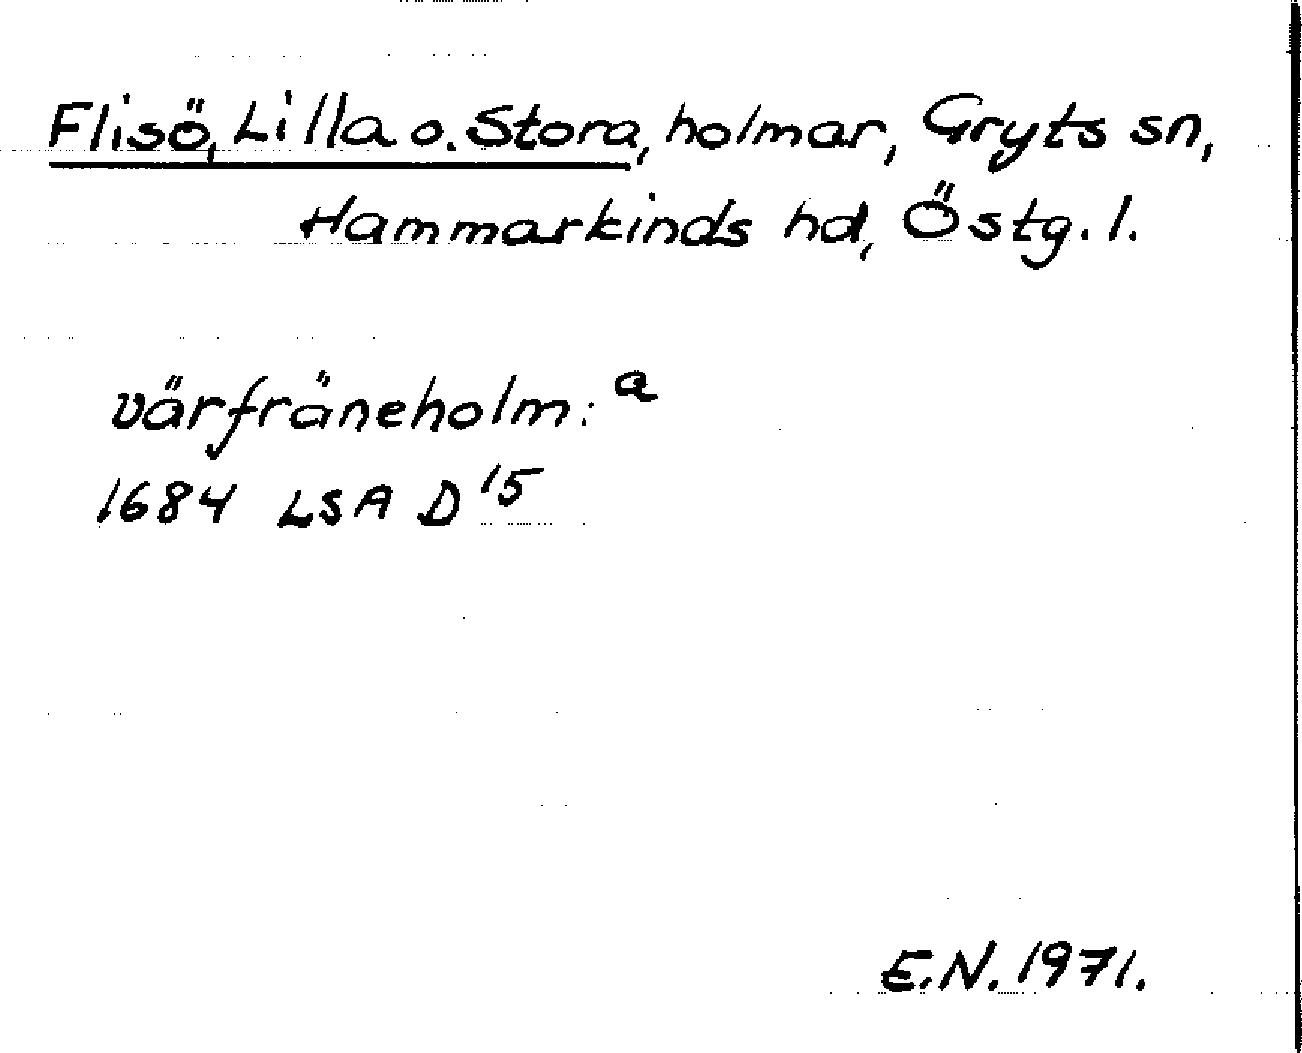 Flisö, Lilla o. Stora, holmar, Gryts sn,
Hammarkinds hd, Östg. l.
värfräneholm:a
1684 LSA D15
E.N. 1971.